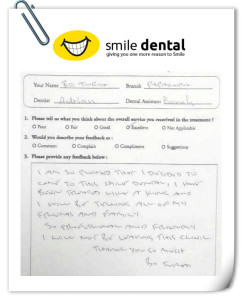 smile dental
giving you one more reason to Smile
Your Name Branch
Dentist Adrian Dental Assistant
1. Please tell us what you think about the overall service you received in the treatment ?
Poor Fair Good Excellent Not Applicable
2. Would you describe your feedback as :
Comment Complain Compliment Suggestions
3. Please provide any feedback below :
I AM SO PLEASED THAT I DECIDED TO
COME TO THIS SMILE DENTAL, I HAVE
BEEN TREATED LIKE A KING AND
I WILL BE TELLING ALL OF MY
FRIENDS AND FAMILY
SO PROFESSIONAL AND FRIENDLY
I WILL NOT BE LEAVING THIS CLINIC.
THANK YOU SO MUCH